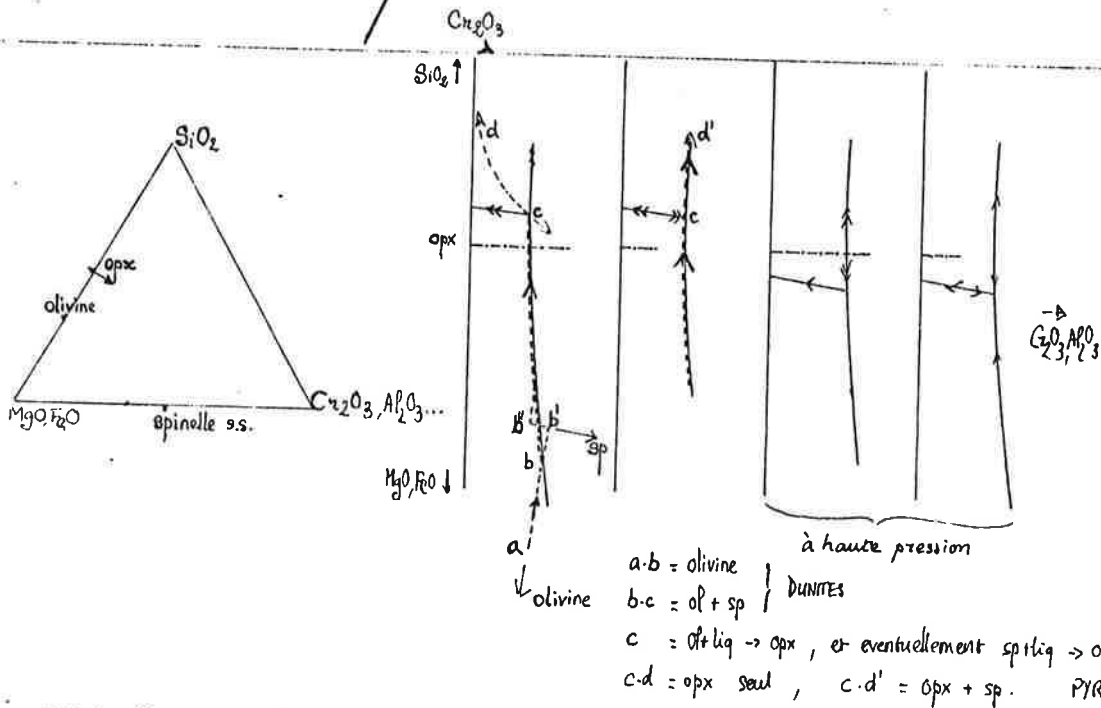 Cr2O3
SiO2 ↑
SiO2
opx
olivine
MgO, FeO
spinelle s.s.
Cr2O3, Al2O3...
d
c
opx
b" b'
sp
b
MgO, FeO ↓
a
olivine
d'
c
Cr2O3, Al2O3
à haute pression
a.b = olivine
b.c = ol + sp } DUNITES
c = ol+liq → opx, et eventuellement sp+liq → o
c.d = opx seul, c.d' = opx + sp. PYR